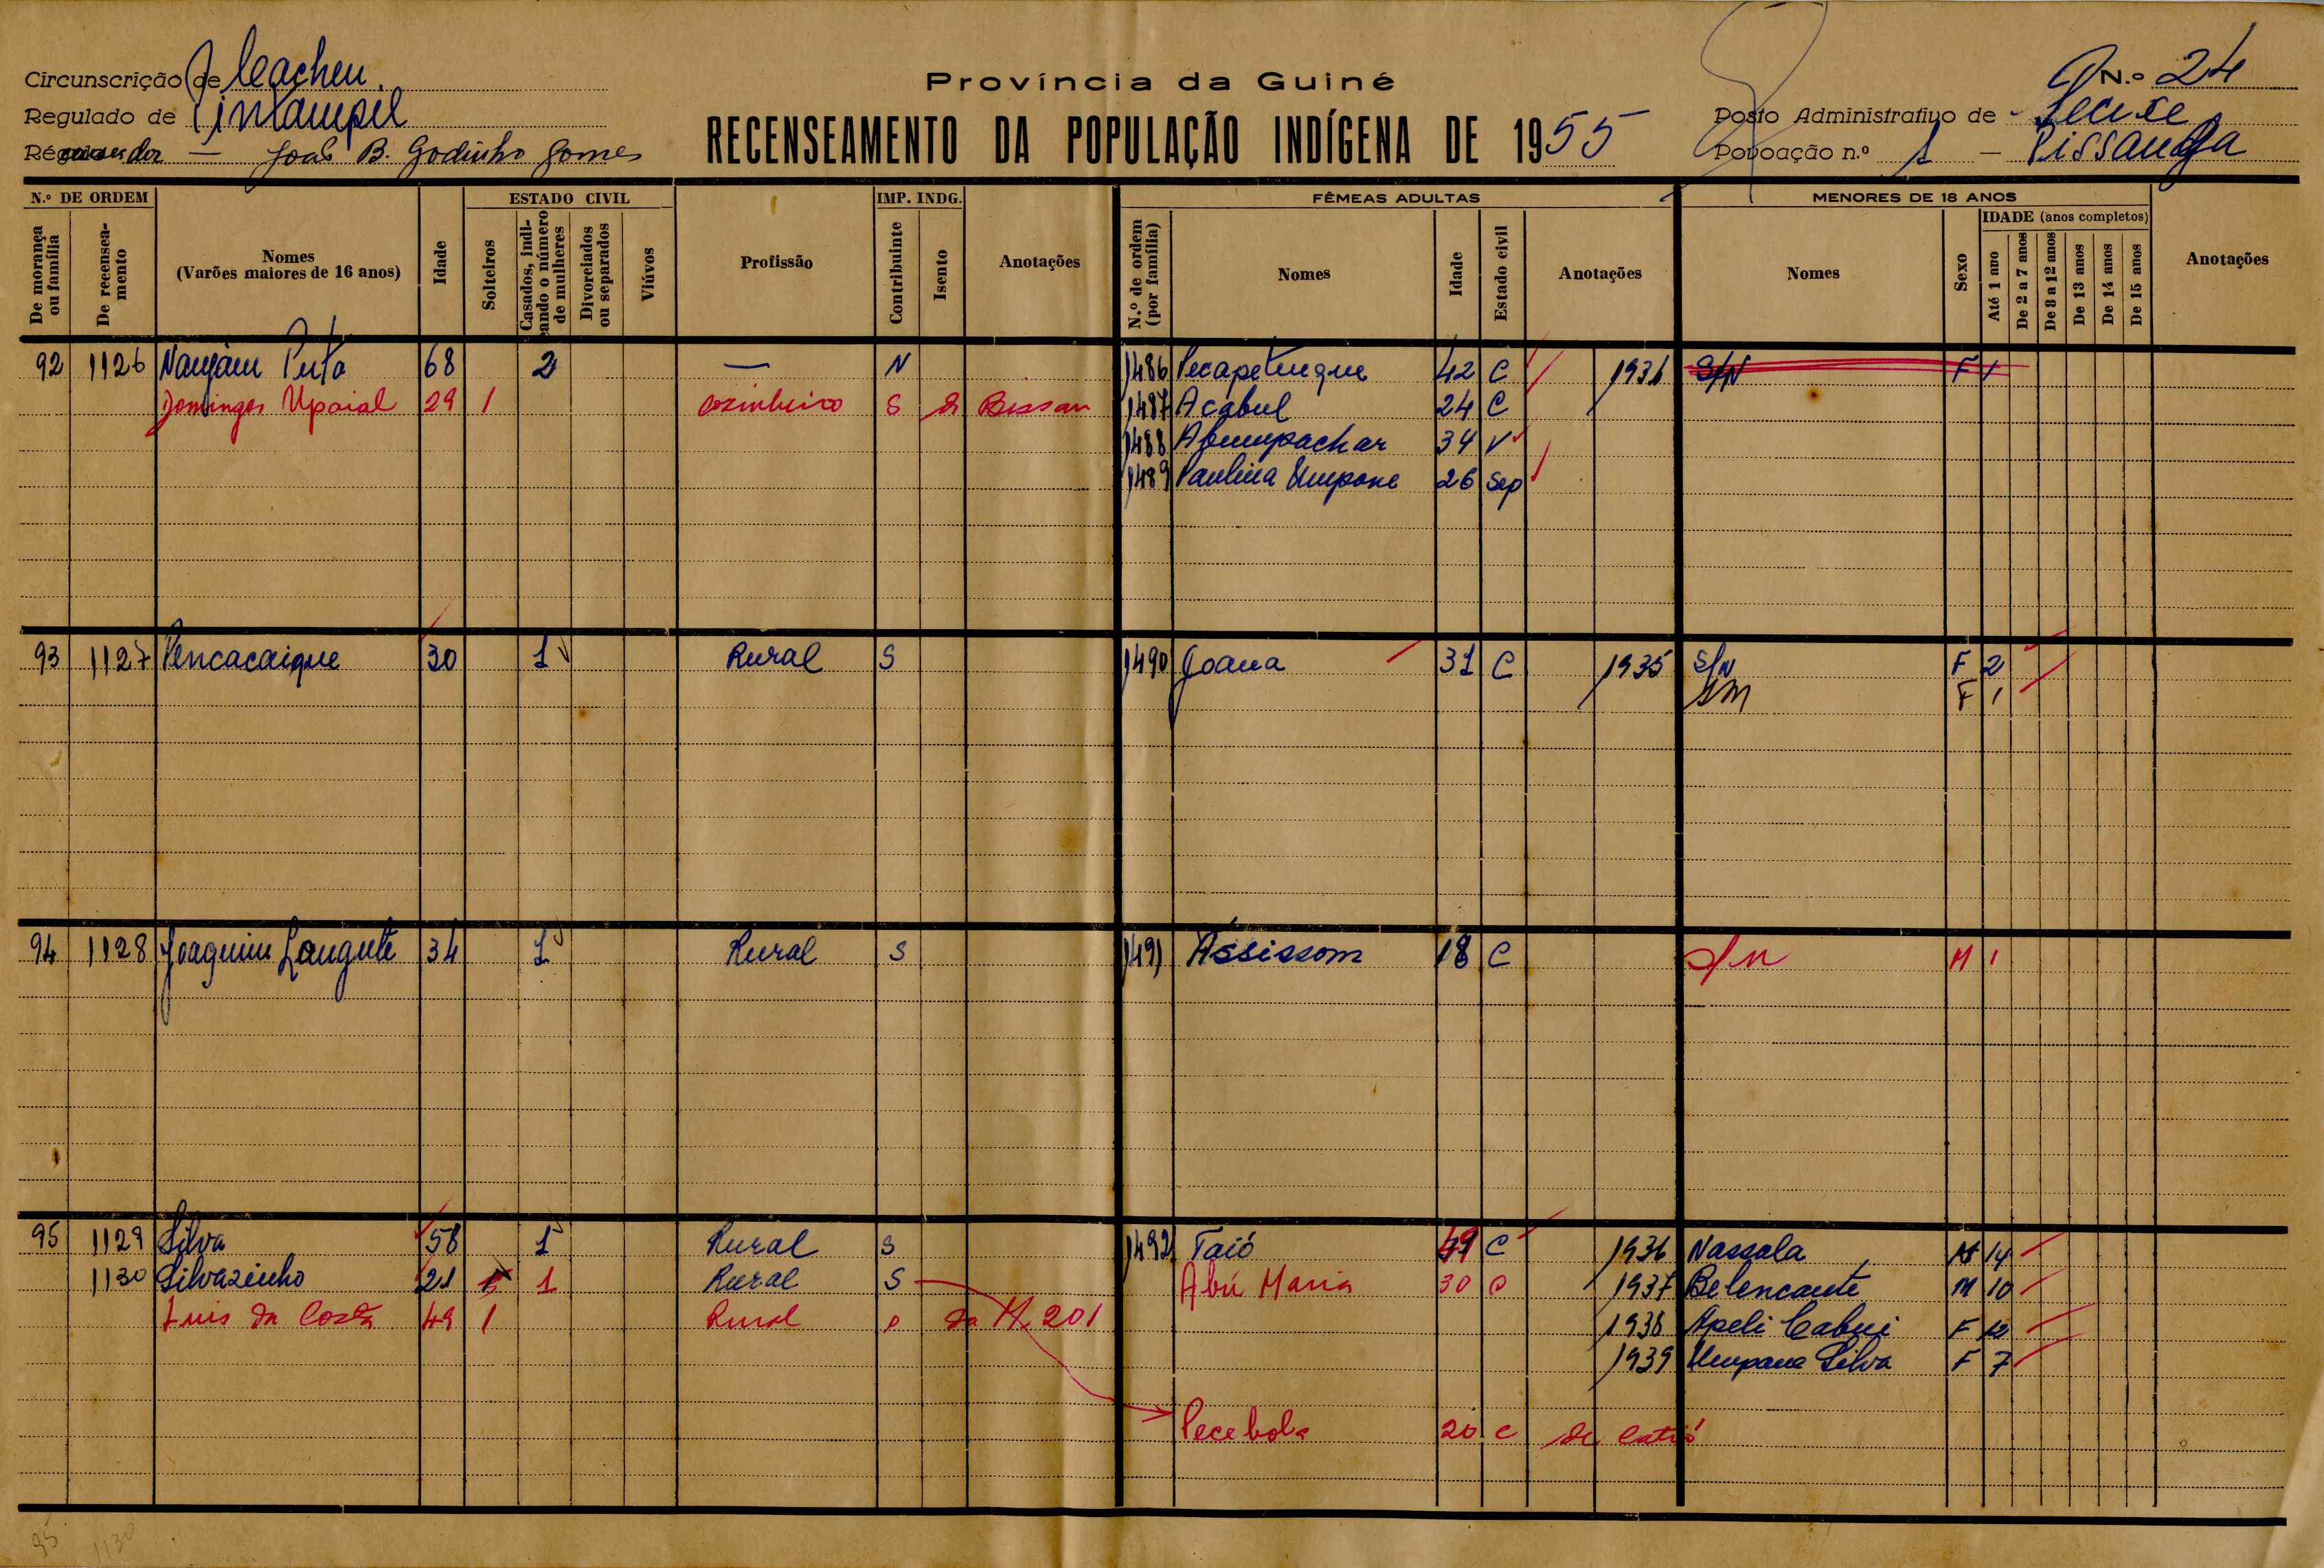 Circunscrição de Cacheu
Província da Guiné
N.º 24
Regulado de Timtampil
Posto Administrativo de
RECENSEAMENTO DA POPULAÇÃO INDÍGENA DE 1955
Recenseador — João B. Godinho Gomes
Povoação n.º 1 – Pissanga
N.º DE ORDEM
De morança ou família
De recenseamento
Nomes
(Varões maiores de 16 anos)
Idade
ESTADO CIVIL
Solteiros
Casados, indicando o número de mulheres
Divorciados ou separados
Viúvos
Profissão
IMP. INDG.
Contribuinte
Isento
Anotações
FÊMEAS ADULTAS
N.º de ordem (por família)
Nomes
Idade
Estado civil
Anotações
MENORES DE 18 ANOS
Nomes
Sexo
IDADE (anos completos)
Até 1 ano
De 2 a 7 anos
De 8 a 12 anos
De 13 anos
De 14 anos
De 15 anos
Anotações
92 1126 Nanjam Puto 68 2 — N 1486 Pecapetungue 42 C 1931 S/N F 1
Domingos Upaial 29 1 cozinheiro S de Bissau 1487 Acabul 24 C
1488 Abumpachar 34 V
1489 Paulina Umpone 26 Sep
93 1127 Pencacaique 30 1 Rural S 1490 Joana 31 C 1935 S/N F 2
S/N F 1
94 1128 Joaquim Langute 34 1 Rural S 1491 Assissom 18 C S/N M 1
95 1129 Silva 58 1 Rural S 1492 Taió 49 C 1936 Nassala M 14
1130 Silvazinho 21 1 Rural S Abú Maria 30 C 1937 Belencante M 10
Luis da Costa 49 1 Rural S da M 201 1938 Apeli Cabui F 12
1939 Umpane Silva F 7
Pecebola 20 C de Catió
95 1130